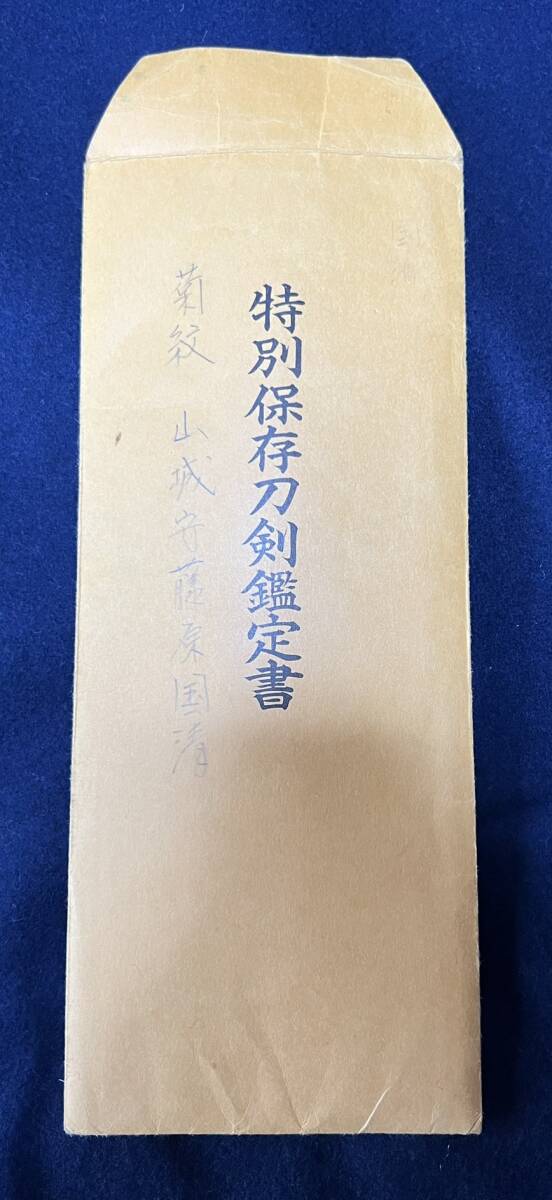 国清
特別保存刀剣鑑定書
菊紋 山城守藤原国清